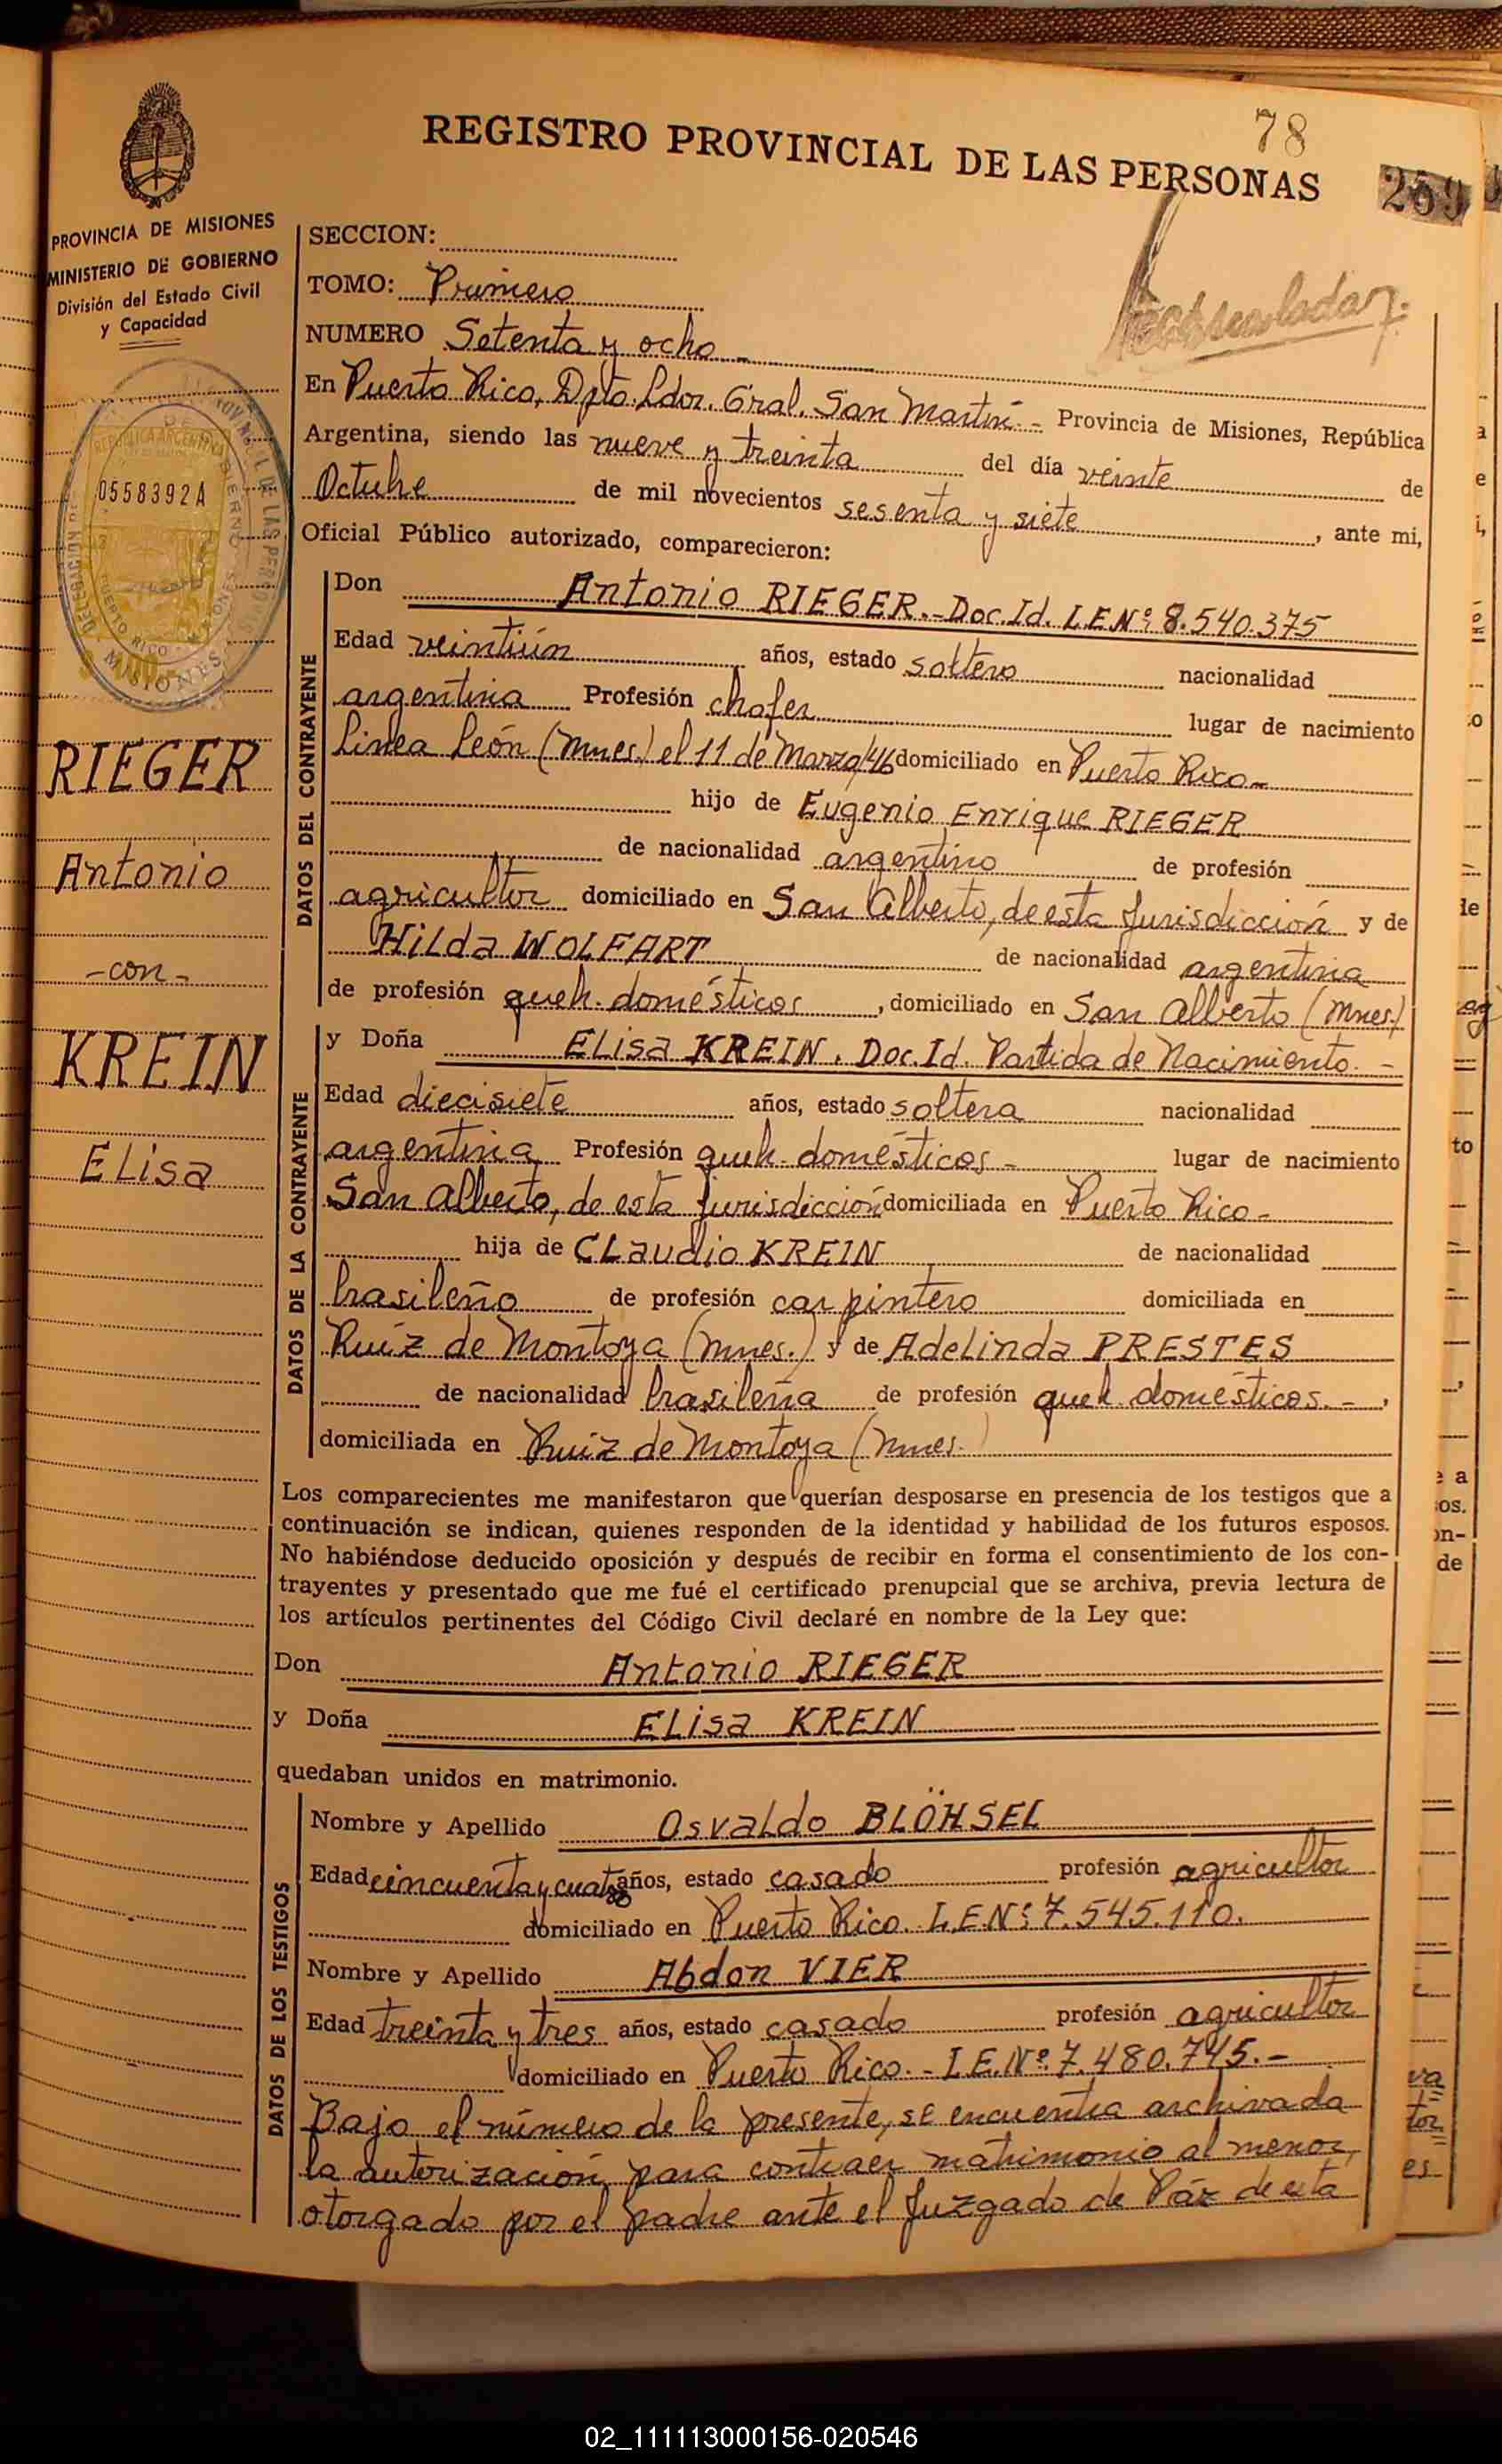 78
REGISTRO PROVINCIAL DE LAS PERSONAS
259
PROVINCIA DE MISIONES
MINISTERIO DE GOBIERNO
División del Estado Civil
y Capacidad
REPUBLICA ARGENTINA
0558392A
PUERTO RICO
MISIONES
RIEGER
Antonio
-con-
KREIN
Elisa
SECCION:
TOMO: Primero
NUMERO Setenta y ocho -
En Puerto Rico, Dpto. Ldor. Gral. San Martín. - Provincia de Misiones, República
Argentina, siendo las nueve y treinta del día veinte de
Octubre de mil novecientos sesenta y siete, ante mi,
Oficial Público autorizado, comparecieron:
DATOS DEL CONTRAYENTE
Don Antonio RIEGER.- Doc. Id. L E Nº: 8.540.375
Edad veintiún años, estado soltero nacionalidad
argentina Profesión chofer lugar de nacimiento
Linea León (Mnes.) el 11 de Marzo/46 domiciliado en Puerto Rico-
hijo de Eugenio Enrique RIEGER
de nacionalidad argentino de profesión
agricultor domiciliado en San Alberto, de esta Jurisdicción y de
Hilda WOLFART de nacionalidad argentina
de profesión queh. domésticos, domiciliado en San Alberto (Mnes.)
DATOS DE LA CONTRAYENTE
y Doña Elisa KREIN. Doc. Id. Partida de Nacimiento. -
Edad diecisiete años, estado soltera nacionalidad
argentina Profesión queh. domésticos - lugar de nacimiento
San Alberto, de esta jurisdicción domiciliada en Puerto Rico-
hija de Claudio KREIN de nacionalidad
brasileño de profesión carpintero domiciliada en
Ruíz de Montoya (Mnes.) y de Adelinda PRESTES
de nacionalidad brasileña de profesión queh. domésticos. -,
domiciliada en Ruíz de Montoya (Mnes.)
Los comparecientes me manifestaron que querían desposarse en presencia de los testigos que a
continuación se indican, quienes responden de la identidad y habilidad de los futuros esposos.
No habiéndose deducido oposición y después de recibir en forma el consentimiento de los con-
trayentes y presentado que me fué el certificado prenupcial que se archiva, previa lectura de
los artículos pertinentes del Código Civil declaré en nombre de la Ley que:
Don Antonio RIEGER
y Doña Elisa KREIN
quedaban unidos en matrimonio.
DATOS DE LOS TESTIGOS
Nombre y Apellido Osvaldo BLÖHSEL
Edad cincuenta y cuatro años, estado casado profesión agricultor
domiciliado en Puerto Rico. L.E.Nº: 7.545.110.
Nombre y Apellido Abdon VIER
Edad treinta y tres años, estado casado profesión agricultor
domiciliado en Puerto Rico. - L.E.Nº: 7.480.745. -
Bajo el número de la presente, se encuentra archivada
la autorización para contraer matrimonio al menor,
otorgado por el padre ante el Juzgado de Páz de esta
02_111113000156-020546